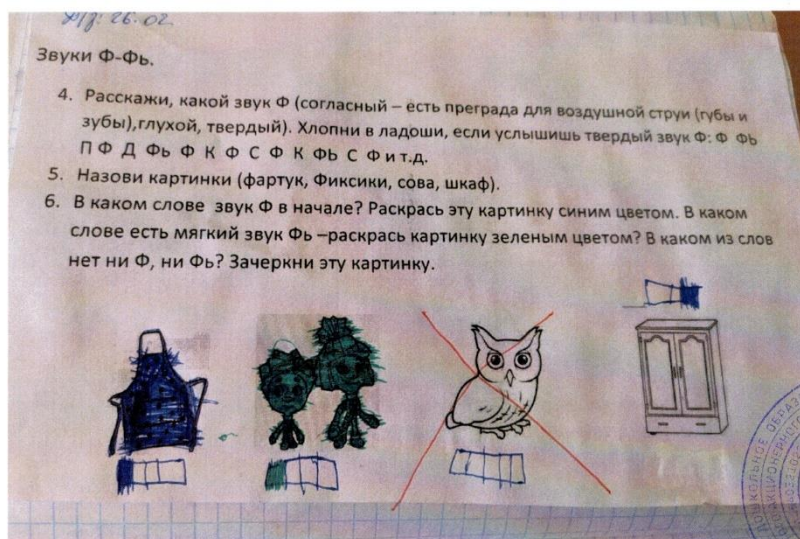 Д/з: 26.02
Звуки Ф-Фь.
4. Расскажи, какой звук Ф (согласный – есть преграда для воздушной струи (губы и
зубы),глухой, твердый). Хлопни в ладоши, если услышишь твердый звук Ф: Ф Фь
П Ф Д Фь Ф К Ф С Ф К ФЬ С Ф и т.д.
5. Назови картинки (фартук, Фиксики, сова, шкаф).
6. В каком слове звук Ф в начале? Раскрась эту картинку синим цветом. В каком
слове есть мягкий звук Фь –раскрась картинку зеленым цветом? В каком из слов
нет ни Ф, ни Фь? Зачеркни эту картинку.